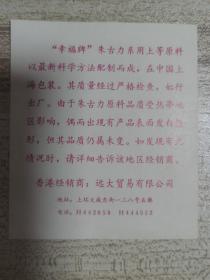 “幸福牌”朱古力系用上等原料
以最新科学方法配制而成，在中国上
海包装。其质量经过严格检查，如行
出厂。由于朱古力原料品质受热带地
区影响，偶而出现有产品表面发白情
形，但其品质仍属未变。如发现有此
情况时，请详细告诉该地区经销商。
香港经销商：远大贸易有限公司
地址：上环文咸东街一二八号五楼
电话：